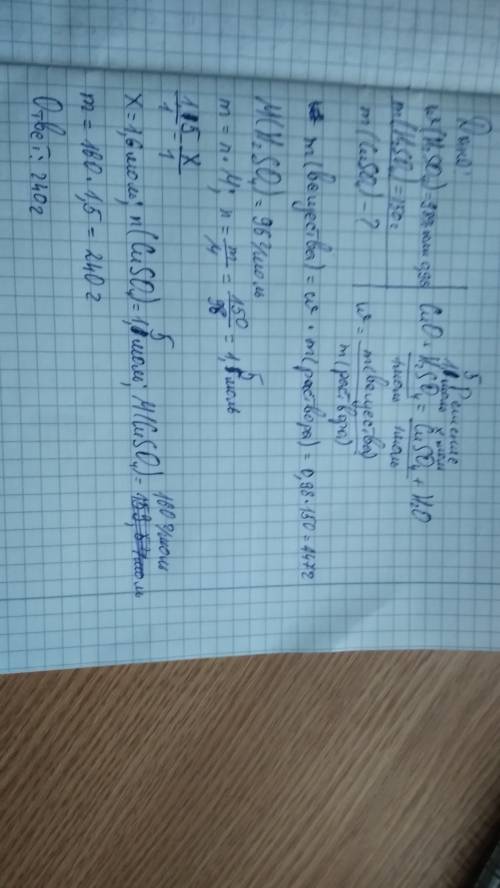 Дано: Решение
w(H₂SO₄)=98% или 0,98
m(H₂SO₄)=150г
m(CuSO₄)-?
1,5 моль x моль
CuO + H₂SO₄ = CuSO₄ + H₂O
1моль 1моль
w = m(вещества) / m(раствора)
m(вещества) = w · m(раствора) = 0,98·150=147г
M(H₂SO₄) = 98 г/моль
m = n · M; n = m/M = 150/98 = 1,5 моль
1,5/1 = x/1
x = 1,6 моль; n(CuSO₄) = 1,5 моль; M(CuSO₄) = 160 г/моль
m = 160 · 1,5 = 240 г
Ответ: 240г